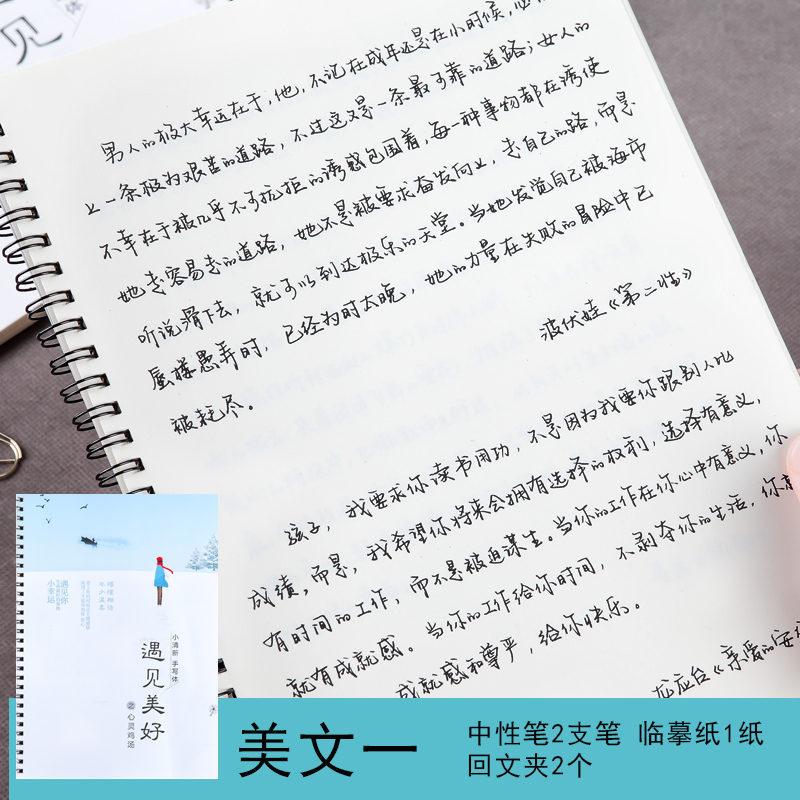 见
体
男人的极大幸运在于,他,不论在成年还是在小时候,必
上一条极为艰苦的道路,不过这又是一条最可靠的道路;女人的
不幸在于被几乎不可抗拒的诱惑包围着,每一种事物都在诱使
她走容易走的道路,她不是被要求奋发向上,走自己的路,而是
听说滑下去,就可以到达极乐的天堂。当她发觉自己被海市
蜃楼愚弄时,已经为时太晚,她的力量在失败的冒险中已
被耗尽。
波伏娃《第二性》
孩子,我要求你读书用功,不是因为我要你跟别人比
成绩,而是,我希望你将来会拥有选择的权利,选择有意义,
有时间的工作,而不是被迫谋生。当你的工作在你心中有意义,你
就有成就感。当你的工作给你时间,不剥夺你的生活,你
成就感和尊严,给你快乐。
龙应台《亲爱的安
遇见你
小幸运
小清新 手写体
遇见美好
之心灵鸡汤
美文一
中性笔2支笔 临摹纸1纸
回文夹2个